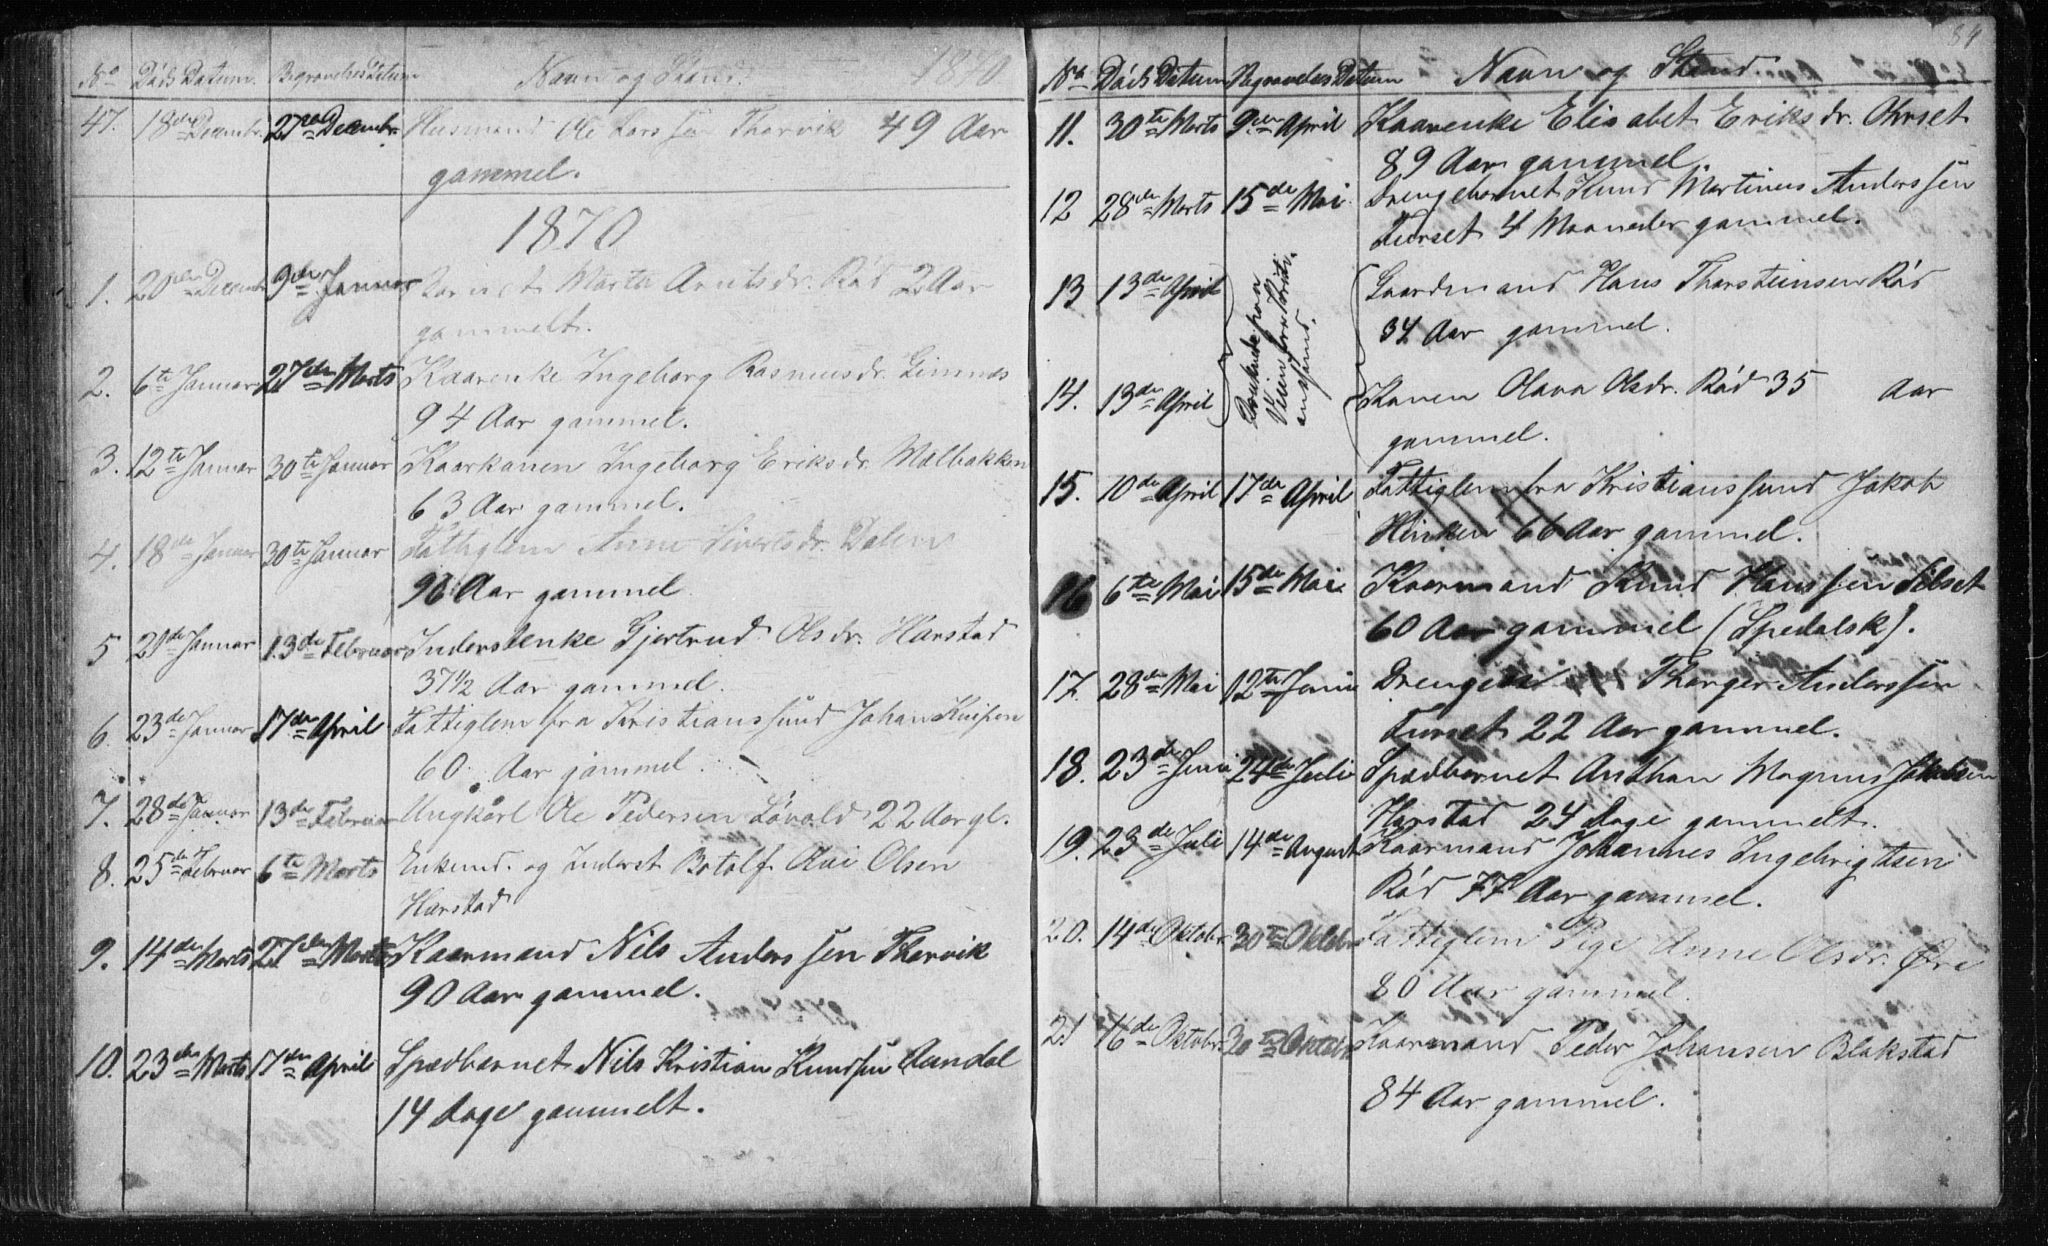 No Døds Datum. Begravelses Datum Navn og Stand. 1870
47. 18de Decembr. 27de Decembr. Husmand Ole Larssen Thorvik 49 Aar
gammel.
1870
1. 20de Decembr 9de Januar Barnet Marta Arntsdr. Rød 2 Aar
gammelt.
2. 6te Januar 27de Marts Kaarenke Ingeborg Rasmusdr. Gimnes
94 Aar gammel.
3. 12te Januar 30te Januar Kaarkonen Ingeborg Eriksdr. Molbakken
63 Aar gammel.
4. 18de Januar 30te Januar Fattiglem Anne Sivertsdr. Dalen
Aar gammel
5 21de Januar 13de Februar Inderstenke Gjertrud Olsdr. Harstad
37 1/2 Aar gammel.
6. 23de Januar 17de April Fattiglem fra Kristianssund Johan
60 Aar gammel.
7. 28de Januar 13de Februar Ungkarl Ole Pedersen Løvold 22 Aar gl.
8. 25de Februar 6te Marts Enkemd. og Inderst Botolf Olsen
Harstad
9. 14de Marts 27de Marts Kaarmand Nils Anderssen Thorvik
90 Aar gammel.
10. 23de Marts 17de April Spædbarnet Nils Kristian Knudsen Aandal
14 dage gammelt.
84
No Døds Datum Begravelses Datum Navn og Stand.
11. 30te Marts 9de April Kaarenke Elisabet Eriksdr. Ohrset
89 Aar gammel.
12 28de Marts 15de Mai Drengebarnet Knud Martinus Anderssen
Furset 4 Maaneder gammel.
13 13de April Gaardmand Hans Thorsteinsen Rød
34 Aar gammel.
Druknede paa
Veien fra Kristi-
anssund.
14. 13de April Konen Olava Olsdr. Rød 35 Aar
gammel.
15. 10de April 17de April Fattiglem fra Kristianssund Jakob
66 Aar gammel.
16 6te Mai 15de Mai Kaarmand Knud Hanssen Silset
60 Aar gammel (Spedalsk).
17. 28de Mai 12te Juni Drengen Thorger Anderssen
Furset 22 Aar gammel.
18. 23de Juni 24de Juli Spædbarnet Anthon Magnus Jakobsen
Harstad 24 dage gammelt.
19. 23de Juli 14de August Kaarmand Johannes Ingebrigtsen
Rød 77 Aar gammel.
20. 14de Oktobr. 30te Oktobr Fattiglem Pige Anne Olsdr. Øre
80 Aar gammel.
21 16de Oktobr. 30te Oktobr Kaarmand Peder Johansen Blakstad
84 Aar gammel.